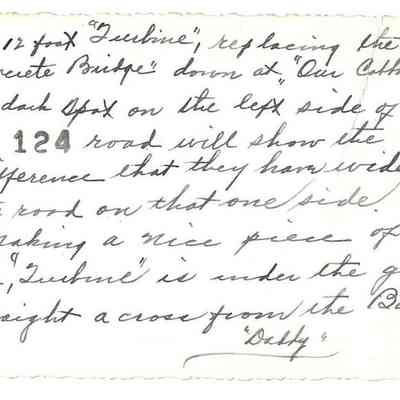 12 foot "Turbine", replacing the
crete Bridge" down at, "Our Cobb
dark spot on the left side of
124 road will show the
fference that they have wide
road on that one side.
aking a nice piece of
"Turbine" is under the g
aight across from the B
"Daddy"